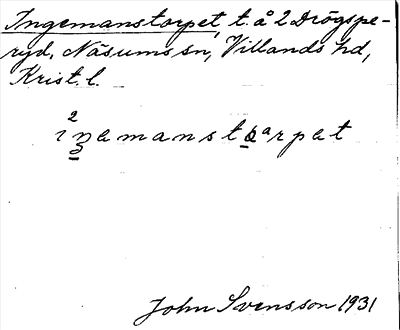 Ingemanstorpet, t. å 2 Drögspe-
ryd, Näsums sn, Villands hd,
Krist. l.
John Svensson 1931